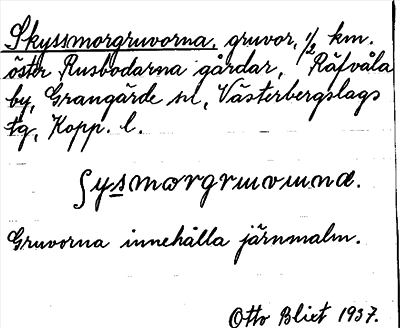 Skyssmorgruvorna, gruvor, 1/2 km.
öster Rusbodarna gårdar, Räfvåla
by, Grangärde sn, Västerbergslags
tg, Kopp. l.
ʃysmorgruvuɯnæ.
Gruvorna innehålla järnmalm.
Otto Bliet 1937.